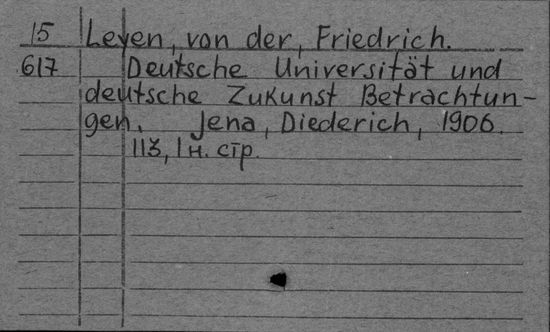 15 Leyen, von der, Friedrich.
617 Deutsche Universität und
deutsche Zukunst Betrachtun-
gen. Jena, Diederich, 1906.
113, 1 н. стр.